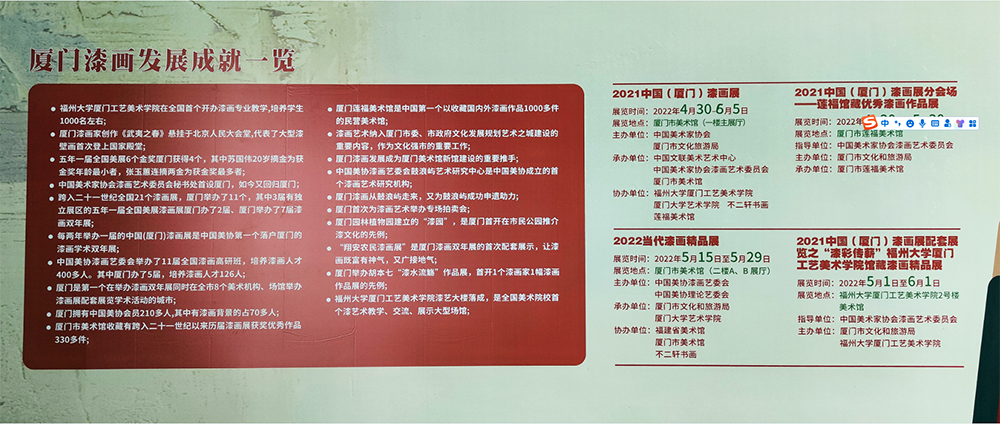 厦门漆画发展成就一览
福州大学厦门工艺美术学院在全国首个开办漆画专业教学,培养学生
1000名左右;
厦门漆画家创作《武夷之春》悬挂于北京人民大会堂,代表了大型漆
壁画首次登上国家殿堂;
五年一届全国美展6个金奖厦门获得4个，其中苏国伟20岁摘金为获
金奖年龄最小者，张玉惠连摘两金为获金奖最多者;
中国美术家协会漆画艺术委员会秘书处首设厦门，如今又回归厦门;
跨入二十一世纪全国21个漆画展，厦门举办了11个，其中3届有独
立展区的五年一届全国美展漆画展厦门办了2届、厦门举办了7届漆
画双年展;
每两年举办一届的中国(厦门)漆画展是中国美协第一个落户厦门的
漆画学术双年展;
中国美协漆画艺委会举办了11届全国漆画高研班，培养漆画人才
400多人。其中厦门办了5届，培养漆画人才126人;
厦门是第一个在举办漆画双年展同时在全市8个美术机构、场馆举办
漆画展配套展览学术活动的城市;
厦门拥有中国美协会员210多人,其中有漆画背景的占70多人;
厦门市美术馆收藏有跨入二十一世纪以来历届漆画展获奖优秀作品
330多件;
厦门莲福美术馆是中国第一个以收藏国内外漆画作品1000多件
的民营美术馆;
漆画艺术纳入厦门市委、市政府文化发展规划艺术之城建设的
重要内容，作为文化强市的重要工作;
厦门漆画发展成为厦门美术馆新馆建设的重要推手;
中国美协漆画艺委会鼓浪屿艺术研究中心是中国美协成立的首
个漆画艺术研究机构;
厦门漆画从鼓浪屿走来，又为鼓浪屿成功申遗助力;
厦门首次为漆画艺术举办专场拍卖会;
厦门园林植物园建立的“漆园”，是厦门首开在市民公园推介
漆文化的先例;
“翔安农民漆画展”是厦门漆画双年展的首次配套展示，让漆
画既富有神气，又广接地气;
厦门举办胡本七“漆水流觞”作品展，首开1个漆画家1幅漆画
作品展的先例;
福州大学厦门工艺美术学院漆艺大楼落成，是全国美术院校首
个漆艺术教学、交流、展示大型场馆;
2021中国（厦门）漆画展
展览时间：2022年4月30-6月5日
展览地点：厦门市美术馆（一楼主展厅）
主办单位：中国美术家协会
厦门市文化旅游局
承办单位：中国文联美术艺术中心
中国美术家协会漆画艺术委员会
厦门市美术馆
协办单位：福州大学厦门工艺美术学院
厦门大学艺术学院 不二轩书画
莲福美术馆
2021中国（厦门）漆画展分会场
——莲福馆藏优秀漆画作品展
展览时间：2022年
中
展览地点：厦门市莲福美术馆
指导单位：中国美术家协会漆画艺术委员会
主办单位：厦门市文化和旅游局
承办单位：厦门市莲福美术馆
2022当代漆画精品展
展览时间：2022年5月15日至5月29日
展览地点：厦门市美术馆（二楼A、B展厅）
主办单位：中国美协漆画艺委会
中国美协理论艺委会
承办单位：厦门市文化和旅游局
厦门大学艺术学院
协办单位：福建省美术馆
厦门市美术馆
不二轩书画
2021中国（厦门）漆画展配套展
览之“漆彩传薪”福州大学厦门
工艺美术学院馆藏漆画精品展
展览时间：2022年5月1日至6月1日
展览地点：福州大学厦门工艺美术学院2号楼
美术馆
指导单位：中国美术家协会漆画艺术委员会
主办单位：厦门市文化和旅游局
福州大学厦门工艺美术学院